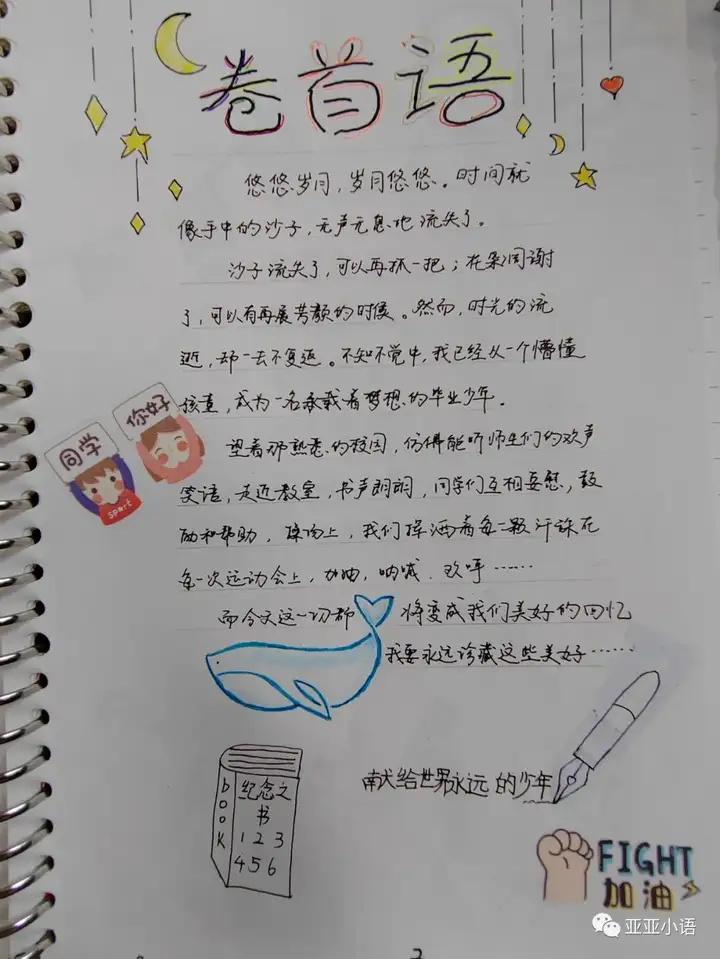 卷首语
悠悠岁月，岁月悠悠。时间就
像手中的沙子，无声无息地流失了。
沙子流失了，可以再抓一把；花朵凋谢
了，可以有再展芳颜的时候。然而，时光的流
逝，却一去不复返。不知不觉中，我已经从一个懵懂
孩童，成为一名承载着梦想的毕业少年。
同学
你好
sport
望着那熟悉的校园，仿佛能听师生们的欢声
笑语，走近教室，书声朗朗，同学们互相安慰，鼓
励和帮助，操场上，我们挥洒着每一颗汗珠在
每一次运动会上，加油，呐喊、欢呼……
而今天这一切都将变成我们美好的回忆
我要永远珍藏这些美好……
献给世界永远的少年
book
纪念之
书
1 2 3
4 5 6
FIGHT
加油
亚亚小语
2